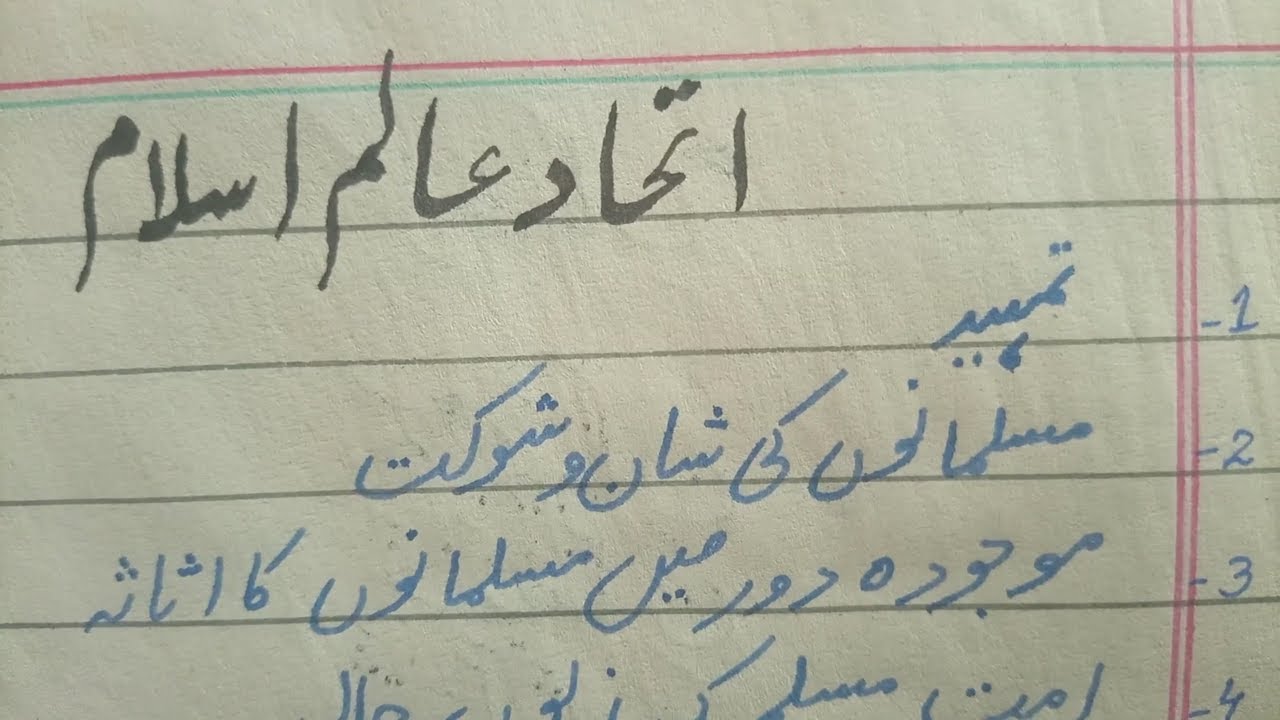 اتحاد عالم اسلام
1- تمہید
2- مسلمانوں کی شان و شوکت
3- موجودہ دور میں مسلمانوں کا اثاثہ
4- امت مسلمہ کی زبوں حالی